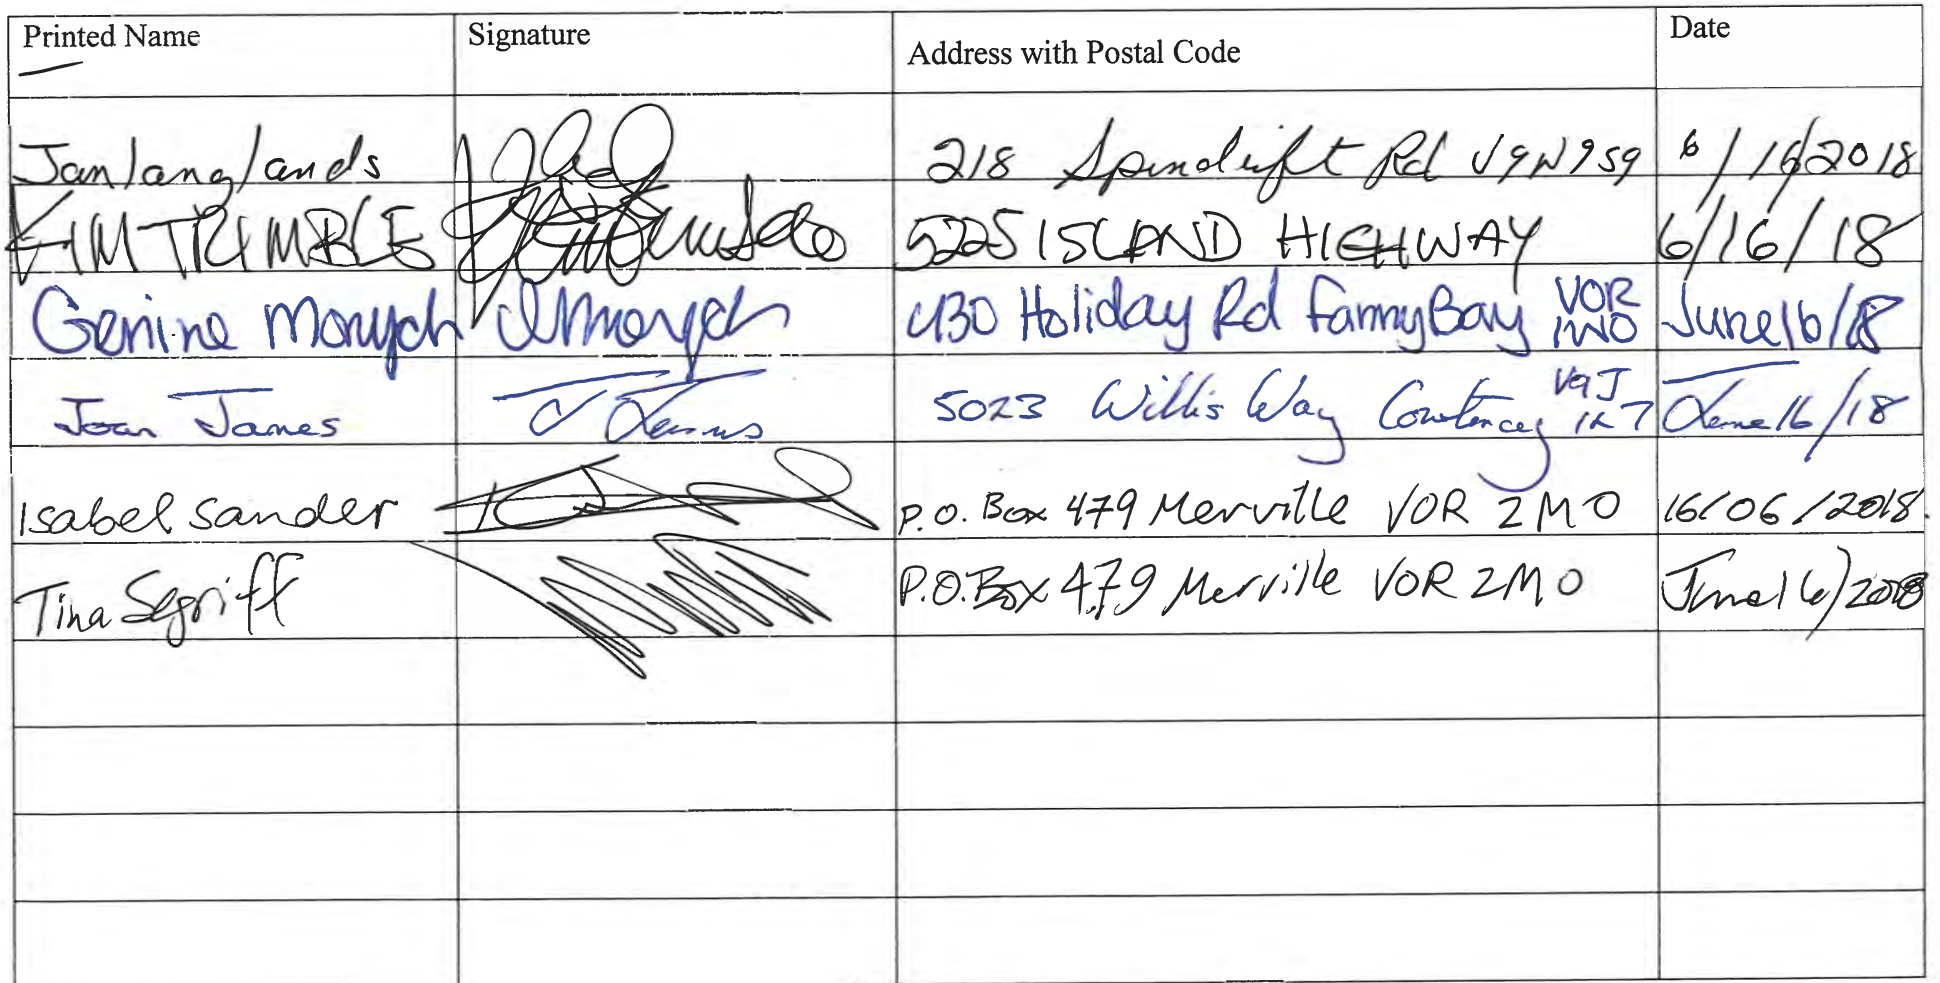 Printed Name Signature Address with Postal Code Date
Jan langlands 218 Spindrift Rd V9N9S9 6/16/2018
KIM TRIMBLE 5225 ISLAND HIGHWAY 6/16/18
Genine Monych GMonych 430 Holiday Rd Fanny Bay V0R 1W0 June 16/18
Joan James J James 5023 Willis Way Courtenay V9J 1K7 June 16/18
Isabel Sander P.O. Box 479 Merville V0R 2M0 16/06/2018.
Tina Segriff P.O. Box 479 Merville V0R 2M0 June 16/2018